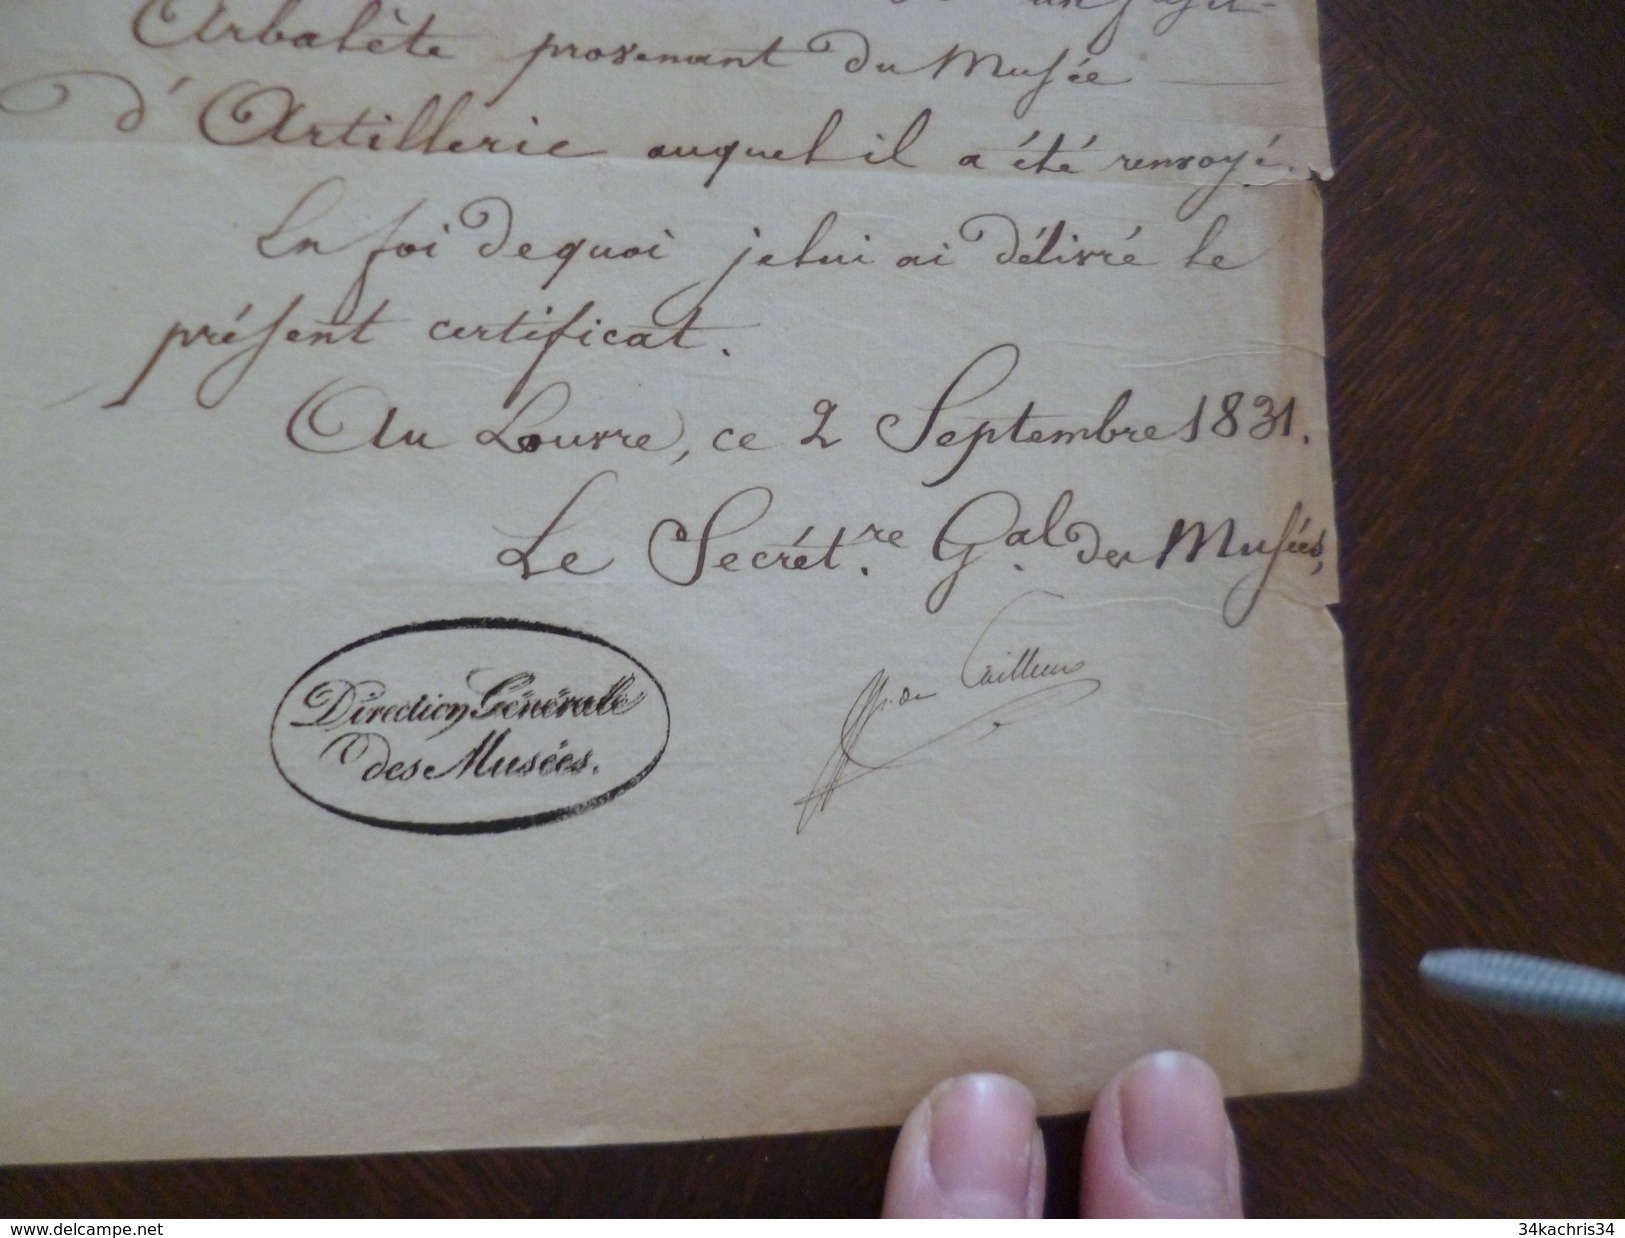 un fusil-
Arbalète provenant du Musée
d'Artillerie auquel il a été renvoyé.
En foi de quoi je lui ai délivré le
présent certificat.
Au Louvre, ce 2 Septembre 1831.
Le Secrét.re G.al des Musées,
de Cailleux
Direction Générale
des Musées.
www.delcampe.net
34kachris34